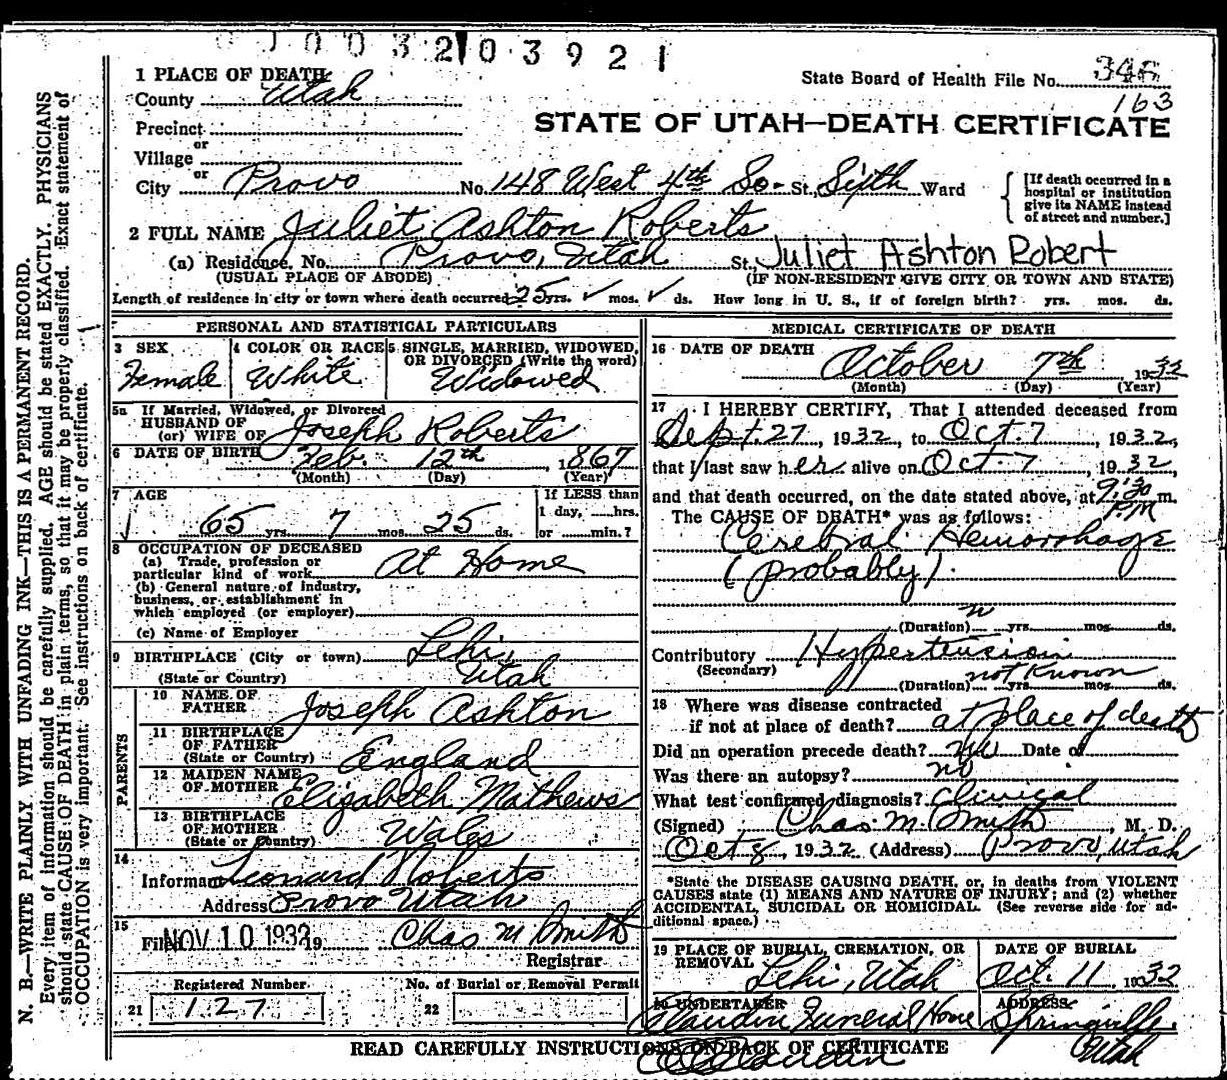 0 0 3 2 0 3 9 2 1
1 PLACE OF DEATH
State Board of Health File No.
163
County Utah
STATE OF UTAH—DEATH CERTIFICATE
Precinct
or
Village
or
City Provo No. 148 West 4th So. St., Sixth Ward
[If death occurred in a hospital or institution give its NAME instead of street and number.]
2 FULL NAME Juliet Ashton Roberts
(a) Residence, No. Provo, Utah St. Juliet Ashton Robert
(USUAL PLACE OF ABODE) (IF NON-RESIDENT GIVE CITY OR TOWN AND STATE)
Length of residence in city or town where death occurred 25 yrs. ✓ mos. ✓ ds. How long in U. S., if of foreign birth? yrs. mos. ds.
PERSONAL AND STATISTICAL PARTICULARS
3 SEX Female
4 COLOR OR RACE White
5 SINGLE, MARRIED, WIDOWED, OR DIVORCED (Write the word)
Widowed
5a If Married, Widowed, or Divorced
HUSBAND OF
(or) WIFE OF Joseph Roberts
6 DATE OF BIRTH Feb. 12th, 1867
(Month) (Day) (Year)
7 AGE
65 yrs. 7 mos. 25 ds.
If LESS than
1 day, hrs.
or min.?
8 OCCUPATION OF DECEASED
(a) Trade, profession or
particular kind of work At Home
(b) General nature of industry,
business, or establishment in
which employed (or employer)
(c) Name of Employer
9 BIRTHPLACE (City or town) Lehi,
(State or Country) Utah
PARENTS
10 NAME OF
FATHER Joseph Ashton
11 BIRTHPLACE
OF FATHER
(State or Country) England
12 MAIDEN NAME
OF MOTHER Elizabeth Mathews
13 BIRTHPLACE
OF MOTHER
(State or Country) Wales
14
Informant Leonard Roberts
Address Provo Utah
15
Filed NOV 10 1932 19 Chas M Smith
Registrar
Registered Number No. of Burial or Removal Permit
21 127 22
MEDICAL CERTIFICATE OF DEATH
16 DATE OF DEATH
October 7th 1932
(Month) (Day) (Year)
17 I HEREBY CERTIFY, That I attended deceased from
Sept. 27, 1932, to Oct. 7, 1932,
that I last saw her alive on Oct. 7, 1932,
and that death occurred, on the date stated above, at 9:30 m.
P.M
The CAUSE OF DEATH* was as follows:
Cerebral Hemorrhage
(probably).
(Duration) yrs. mos. ds.
Contributory Hypertension
(Secondary) not Known
(Duration) yrs. mos. ds.
18 Where was disease contracted
if not at place of death? at place of death
Did an operation precede death? no Date of
Was there an autopsy? no
What test confirmed diagnosis? Clinical
(Signed) Chas. M. Smith, M. D.
Oct 8, 1932 (Address) Provo, Utah
*State the DISEASE CAUSING DEATH, or, in deaths from VIOLENT
CAUSES state (1) MEANS AND NATURE OF INJURY; and (2) whether
ACCIDENTAL, SUICIDAL OR HOMICIDAL. (See reverse side for ad-
ditional space.)
19 PLACE OF BURIAL, CREMATION, OR
REMOVAL Lehi, Utah
DATE OF BURIAL
Oct. 11 1932
20 UNDERTAKER
Claudin Funeral Home
ADDRESS
Springville,
Utah
READ CAREFULLY INSTRUCTIONS ON BACK OF CERTIFICATE
N. B.—WRITE PLAINLY WITH UNFADING INK—THIS IS A PERMANENT RECORD.
Every item of information should be carefully supplied. AGE should be stated EXACTLY. PHYSICIANS
should state CAUSE OF DEATH in plain terms, so that it may be properly classified. Exact statement of
OCCUPATION is very important. See instructions on back of certificate.